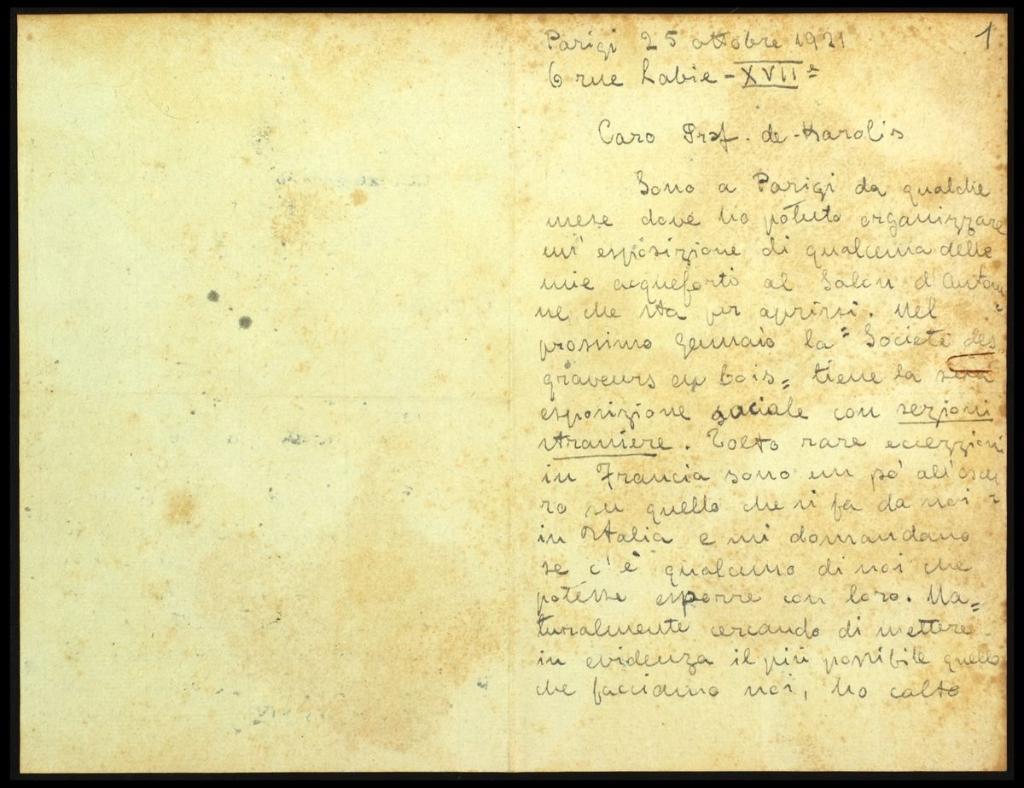 1
Parigi 25 ottobre 1921
6 rue Labie - XVIIe
Caro Prof. de-Karolis
Sono a Parigi da qualche
mese dove ho potuto organizzare
un' esposizione di qualcuna delle
mie acqueforti al Salon d'Autom=
ne che sta per aprirsi. Nel
prossimo gennaio la "Société des
graveurs en bois" tiene la sua
esposizione sociale con sezioni
straniere. Tolto rare eccezzioni
in Francia sono un pò all'oscu=
ro su quello che si fa da noi
in Italia e mi domandano
se c'è qualcuno di noi che
potesse esporre con loro. Na=
turalmente cercando di mettere
in evidenza il più possibile quello
che facciamo noi, ho colto